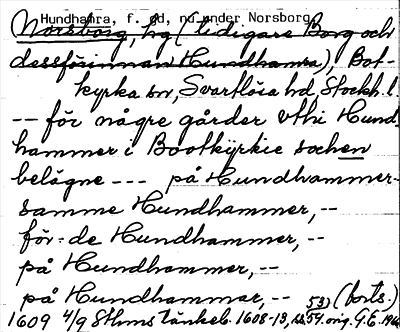 Hundhamra, f. gd, nu under Norsborg
Norsborg, hg (tidigare Borg och
dessförinnan Hundhamra), Bot-
kyrka sn, Svartlösa hd, Stockh. l.
-- för någre gårder vthi Hund
hammer i Bootkÿrkie sochen
belägne --- på Hundhammer-
samme Hundhammer, --
för:de Hundhammer, --
på Hundhammer, --
på Hundhammar, -- 53) (forts.)
1609 4/9 Sthms tänkeb. 1608-13, 54. orig. G.E.